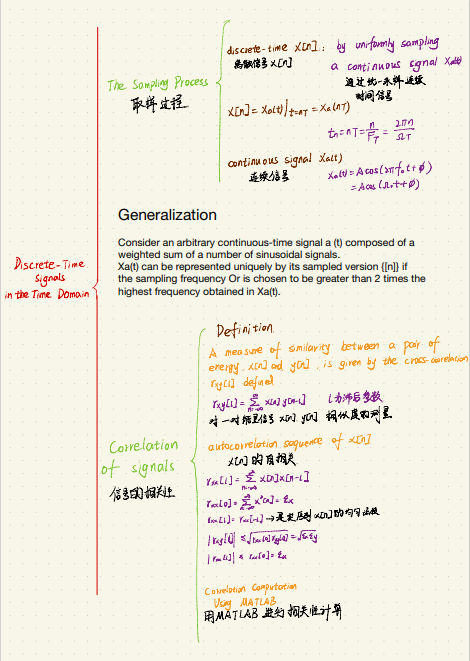 discrete-time x[n]: by uniformly sampling
离散信号x[n]
a continuous signal Xa(t)
通过统一采样连续
时间信号
The Sampling Process
取样过程
x[n] = Xa(t)|t=nT = Xa(nT)
tn = nT = n/FT = 2πn/ΩT
continuous signal Xa(t)
连续信号
Xa(t) = Acos(2πf₀t+ϕ)
= Acos(Ω₀t+ϕ)
Generalization
Consider an arbitrary continuous-time signal a (t) composed of a
weighted sum of a number of sinusoidal signals.
Xa(t) can be represented uniquely by its sampled version {[n]} if
the sampling frequency Or is chosen to be greater than 2 times the
highest frequency obtained in Xa(t).
Discrete-Time
Signals
in the Time Domain
Definition
A measure of similarity between a pair of
energy x[n] and y[n], is given by the cross-correlation
rxy[l] defined
rxy[l] = ∑ n=-∞ ∞ x[n] y[n-l] l为滞后参数
对一对能量信号x[n] y[n] 相似度的测量
autocorrelation sequence of x[n]
x[n]的自相关
Correlation
of signals
信号的相关性
rxx[l] = ∑ n=-∞ ∞ x[n]x[n-l]
rxx[0] = ∑ n=-∞ ∞ x²[n] = εx
rxx[l] = rxx[-l] → 是实序列x[n]的均匀函数
|rxy[l]| ≤ √rxx[0]ryy[0] = √εxεy
|rxx[l]| ≤ rxx[0] = εx
Correlation Computation
Using MATLAB
用MATLAB进行相关性计算